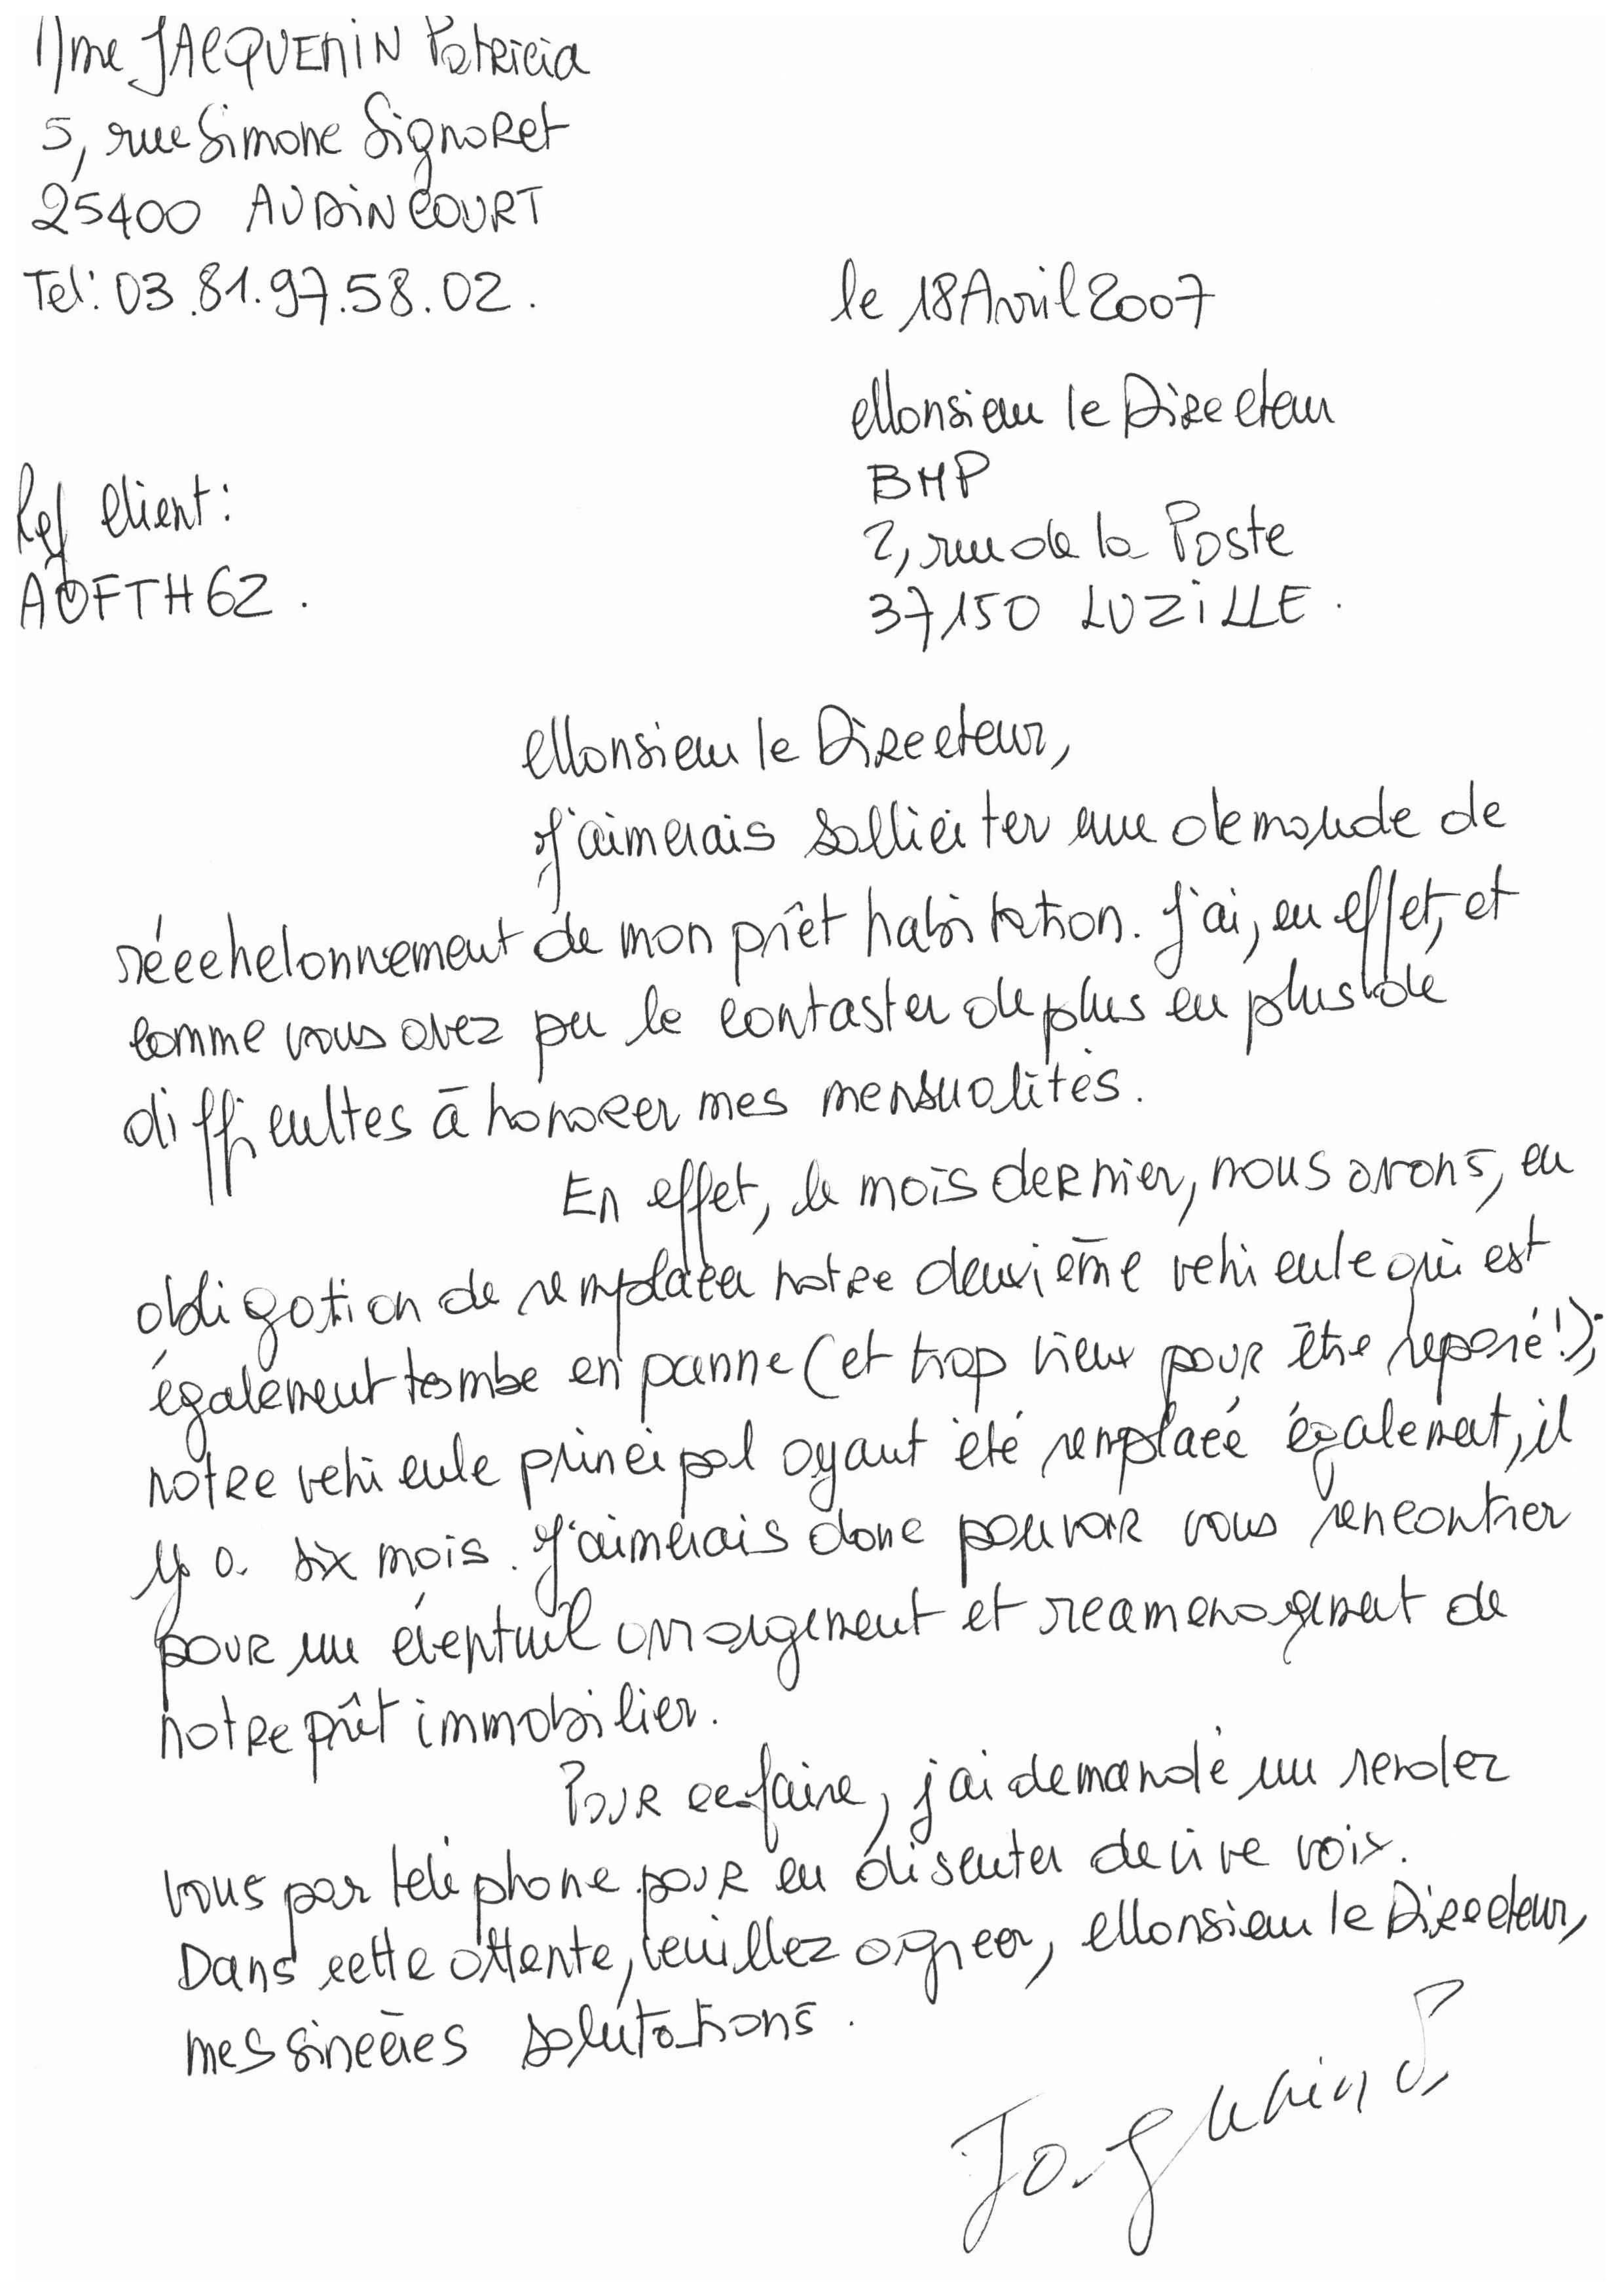 Mme JACQUEMIN Patricia
5, rue Simone Signoret
25400 AUDINCOURT
Tel: 03.81.97.58.02.
le 18 Avril 2007
Monsieur le Directeur
BMP
2, rue de la Poste
37150 LUZILLE.
Ref Client:
AOFTH62.
Monsieur le Directeur,
J'aimerais solliciter une demande de
réechelonnement de mon prêt habitation. J'ai, en effet, et
comme vous avez pu le contaster de plus en plus de
difficultes à honorer mes mensualités.
En effet, le mois dernier, nous avons, eu
obligation de remplacer notre deuxième vehicule qui est
également tombe en panne (et trop vieux pour être reparé!);
notre vehicule principal ayant été remplacé également, il
y a six mois. J'aimerais donc pouvoir vous rencontrer
pour un éventuel arrangement et reamenagement de
notre prêt immobilier.
Pour ce faire, j'ai demandé un rendez
vous par teléphone pour en discuter de vive voix.
Dans cette attente, veuillez agreer, Monsieur le Directeur,
mes sincères salutations.